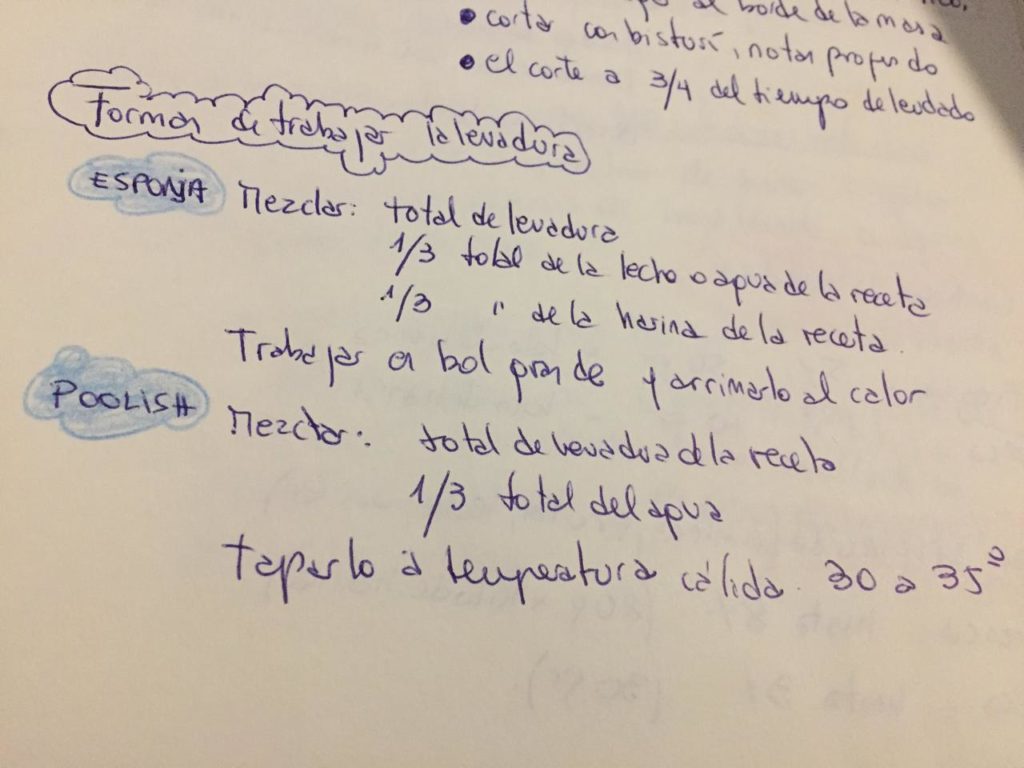 al borde de la masa
• cortar con bisturí, no tan profundo
• el corte a 3/4 del tiempo de leudado
Formas de trabajar la levadura
ESPONJA Mezclar: total de levadura
1/3 total de la leche o agua de la receta
1/3 " de la harina de la receta.
Trabajar en bol grande y arrimarlo al calor
POOLISH
Mezclar: total de levadura de la receta
1/3 total del agua
taparlo a temperatura cálida. 30 a 35°